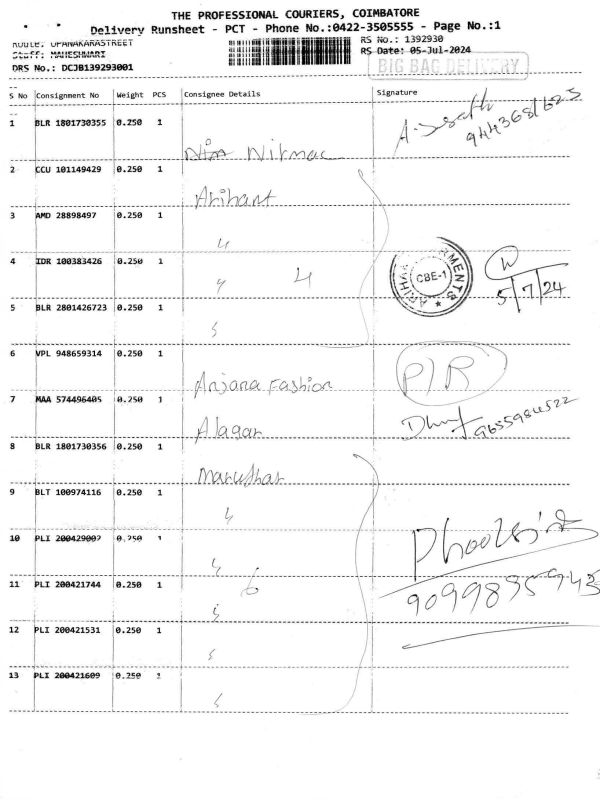 THE PROFESSIONAL COURIERS, COIMBATORE
Delivery Runsheet - PCT - Phone No.:0422-3505555 - Page No.:1
Route: OPANAKARASTREET
RS No.: 1392930
Staff: MAHESHWARI
RS Date: 05-Jul-2024
DRS No.: DCJB139293001
BIG BAG DELIVERY
S No Consignment No Weight PCS Consignee Details Signature
1 BLR 1801730355 0.250 1
Nirmac
2 CCU 101149429 0.250 1
Arihant
3 AMD 28898497 0.250 1
"
4 IDR 100383426 0.250 1
" 4
CBE-1
5/7/24
5 BLR 2801426723 0.250 1
"
6 VPL 948659314 0.250 1
Anjana Fashion
P/R
7 MAA 574496405 0.250 1
Alagar
9655984522
8 BLR 1801730356 0.250 1
Marudhar
9 BLT 100974116 0.250 1
"
10 PLI 200429002 0.250 1
"
11 PLI 200421744 0.250 1
" 6
9099895943
12 PLI 200421531 0.250 1
"
13 PLI 200421609 0.250 1
"